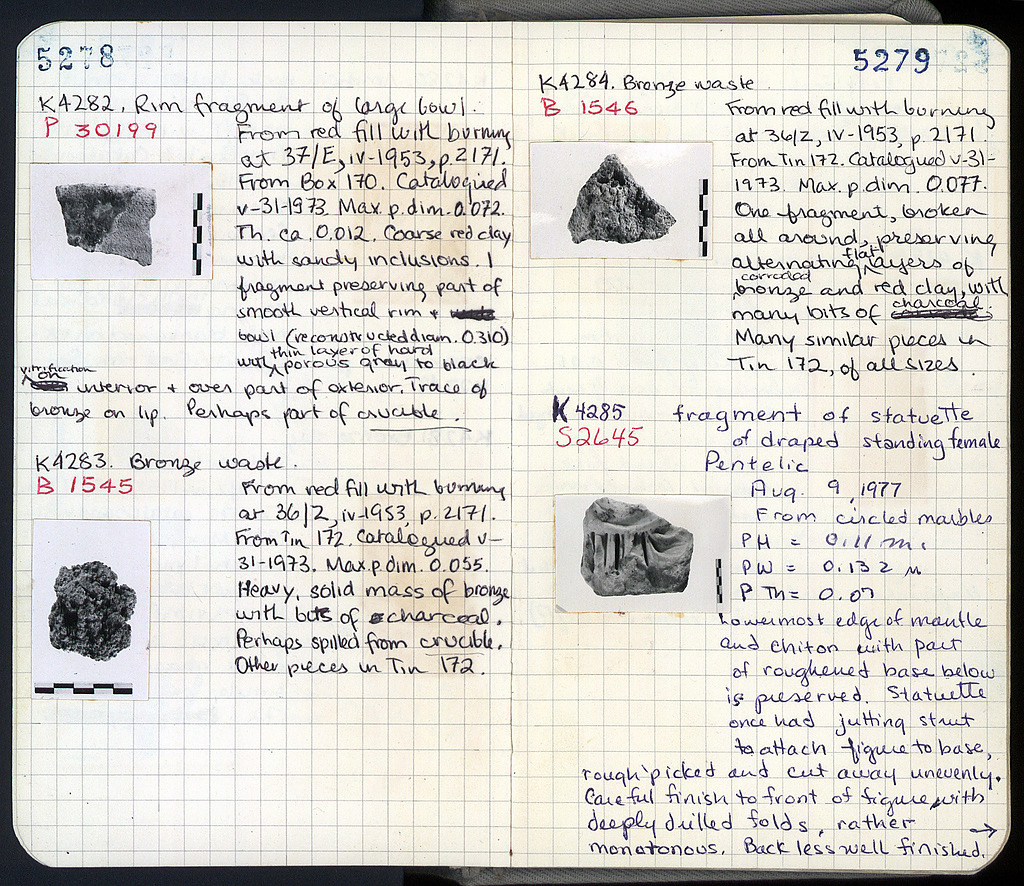 5278
K4282. Rim fragment of large bowl.
P 30199
From red fill with burning
at 37/E, iv-1953, p. 2171.
From Box 170. Catalogued
v-31-1973. Max. p. dim. 0.072.
Th. ca. 0.012. Coarse red clay
with sandy inclusions. 1
fragment preserving part of
smooth vertical rim +
bowl (reconstructed diam. 0.310)
with thin layer of hard porous gray to black
vitrification on interior + over part of exterior. Trace of
bronze on lip. Perhaps part of crucible.
K4283. Bronze waste.
B 1545
From red fill with burning
at 36/Z, iv-1953, p. 2171.
From Tin 172. Catalogued v-
31-1973. Max. p. dim. 0.055.
Heavy, solid mass of bronze
with bits of charcoal.
Perhaps spilled from crucible.
Other pieces in Tin 172.
5279
K4284. Bronze waste
B 1546
From red fill with burning
at 36/Z, iv-1953, p. 2171.
From Tin 172. Catalogued v-31-
1973. Max. p. dim. 0.077.
One fragment, broken
all around, preserving
alternating flat layers of
corroded bronze and red clay, with
many bits of charcoal.
Many similar pieces in
Tin 172, of all sizes.
K4285 fragment of statuette
S2645 of draped standing female
Pentelic
Aug. 9, 1977
From circled marbles
PH = 0.11 m.
PW = 0.132 m
P Th = 0.07
Lowermost edge of mantle
and chiton with part
of roughened base below
is preserved. Statuette
once had jutting strut
to attach figure to base,
rough picked and cut away unevenly.
Careful finish to front of figure, with
deeply drilled folds, rather
monotonous. Back less well finished. →